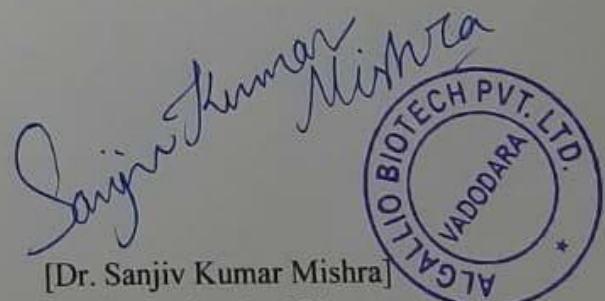 Sanjiv Kumar
Mishra
ALGALLIO BIOTECH PVT. LTD.
VADODARA
*
[Dr. Sanjiv Kumar Mishra]